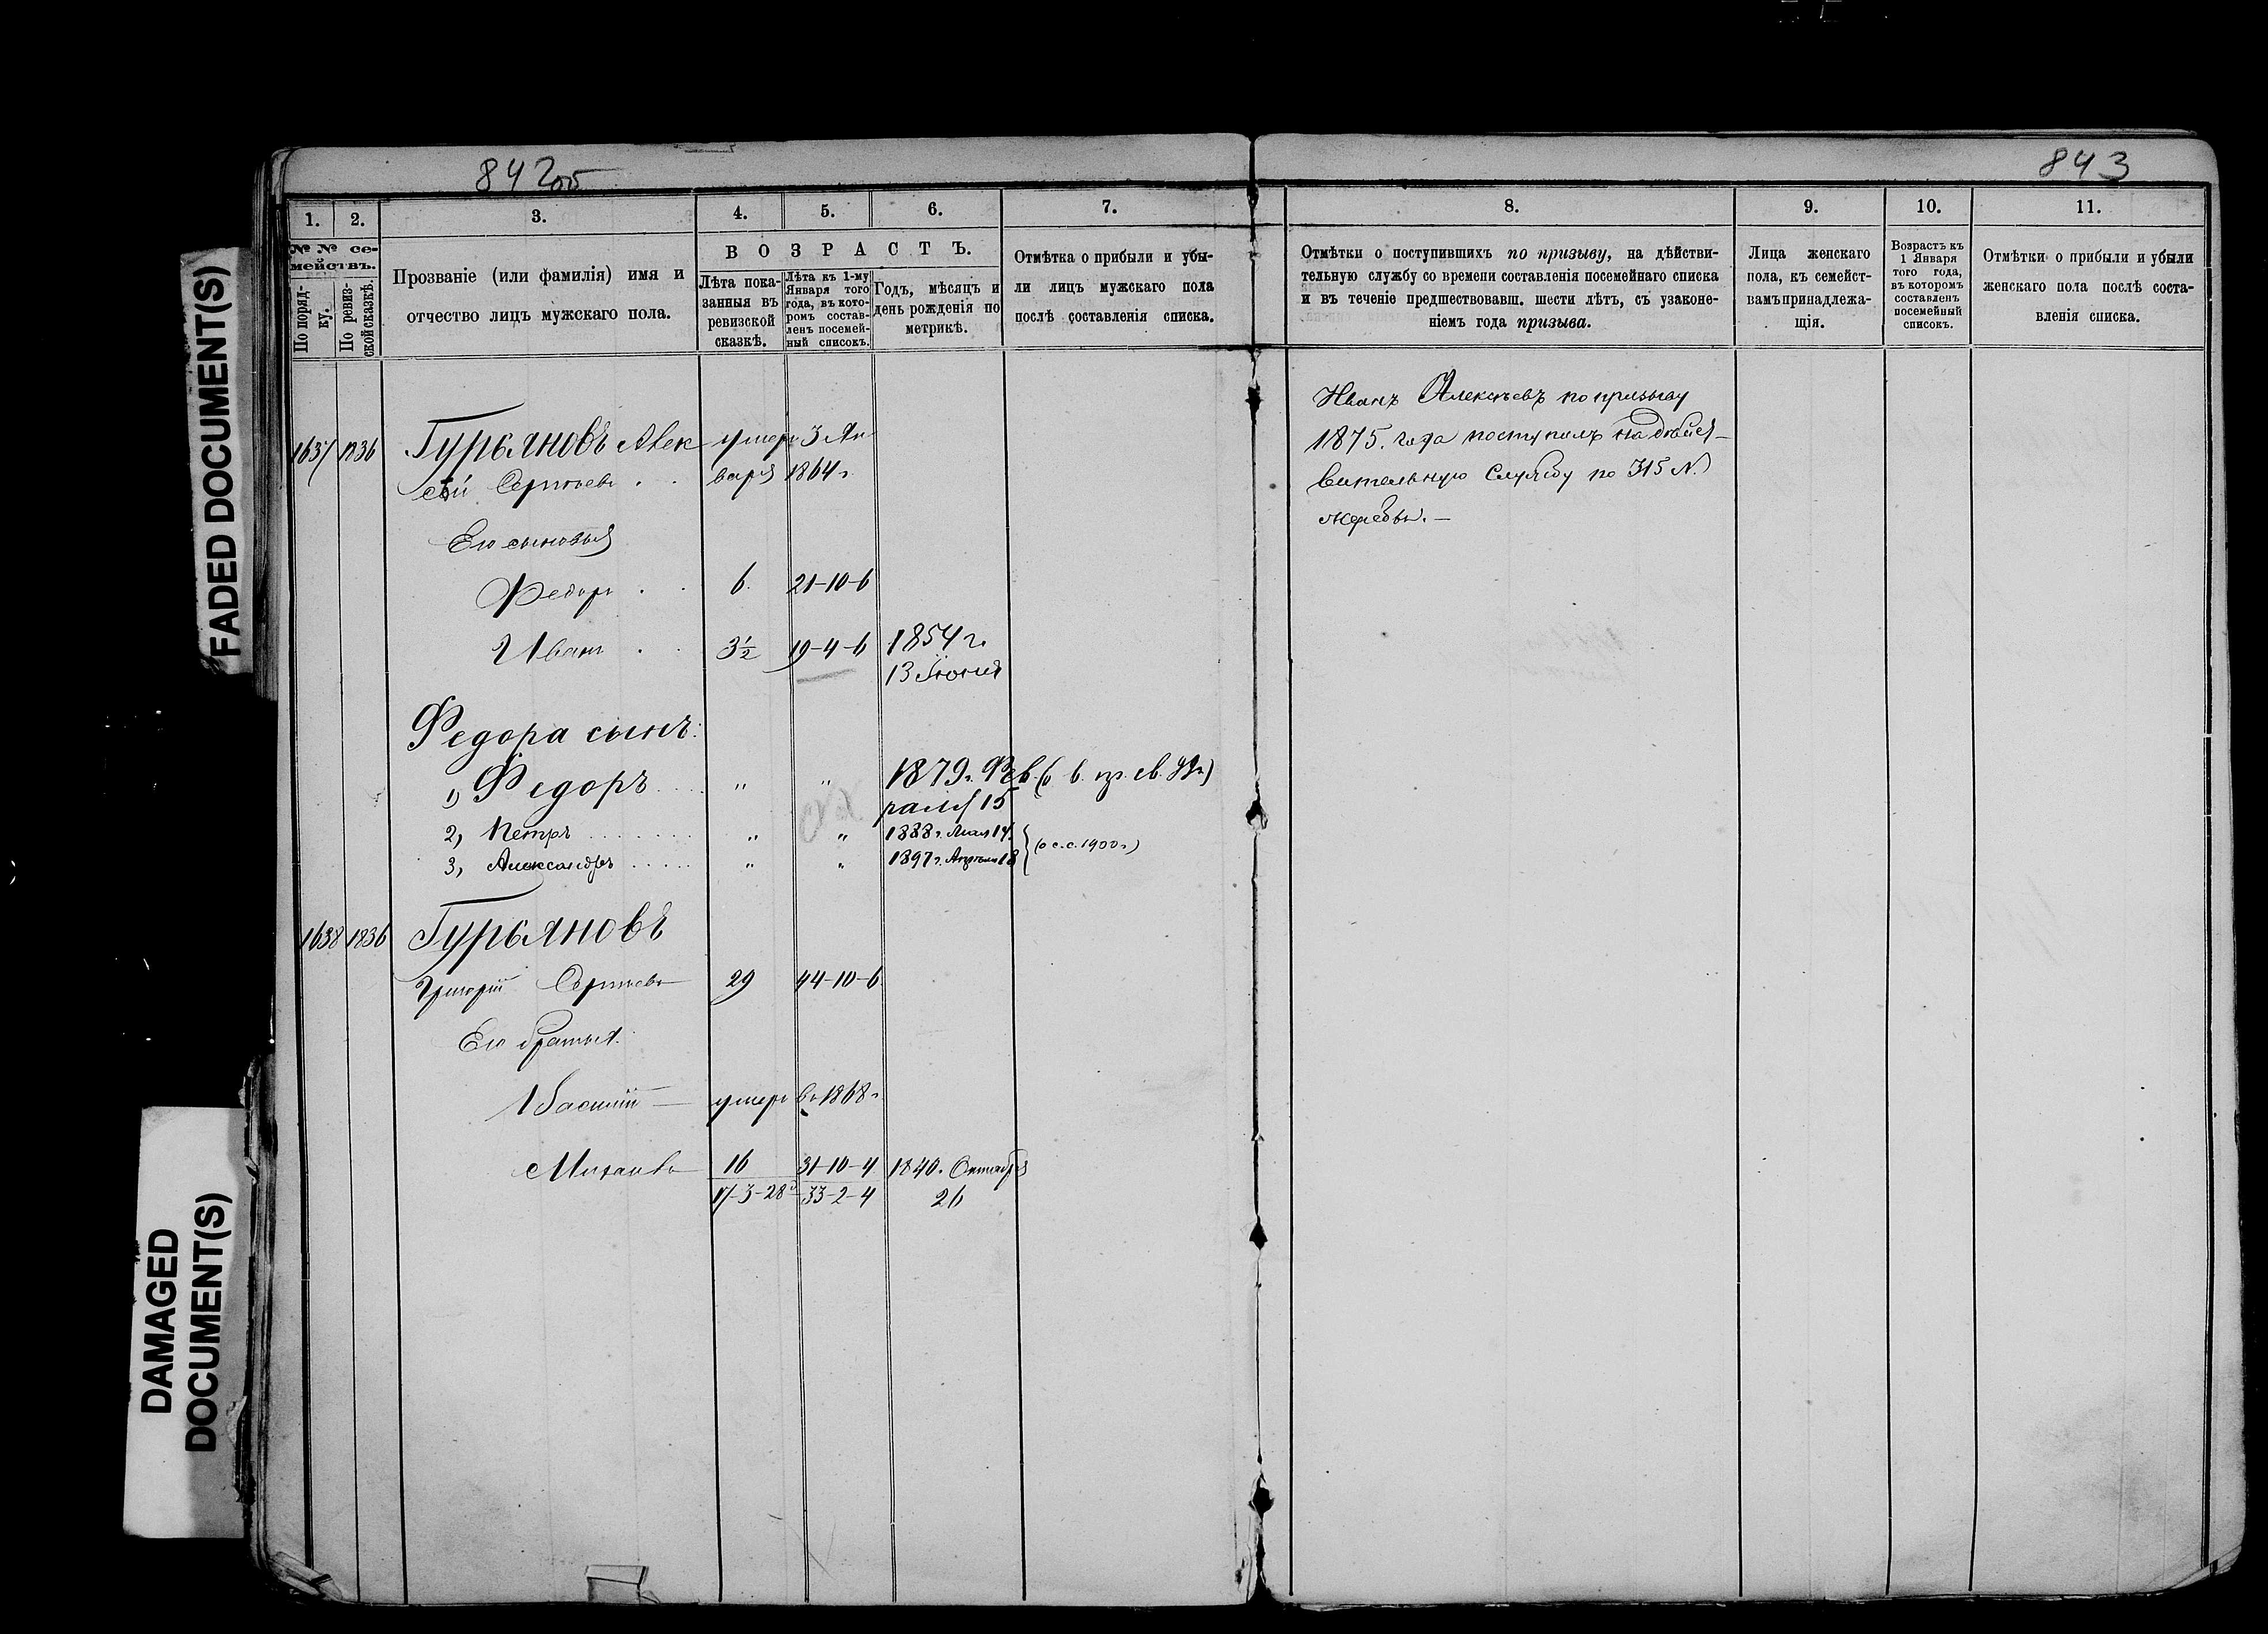 842об
843
1.
2.
3.
4.
5.
6.
7.
8.
9.
10.
11.
№ № се-
мействъ.
По поряд-
ку.
По ревиз-
ской сказкѣ.
Прозваніе (или фамилія) имя и
отчество лицъ мужскаго пола.
ВОЗРАСТЪ.
Лѣта пока-
занныя въ
ревизской
сказкѣ.
Лѣта къ 1-му
Января того
года, въ кото-
ромъ состав-
ленъ посемей-
ный списокъ.
Годъ, мѣсяцъ и
день рожденія по
метрикѣ.
Отмѣтка о прибыли и убы-
ли лицъ мужскаго пола
послѣ составленія списка.
Отмѣтки о поступившихъ по призыву, на дѣйстви-
тельную службу со времени составленія посемейнаго списка
и въ теченіе предшествовавш. шести лѣтъ, съ узаконе-
ніемъ года призыва.
Лица женскаго
пола, къ семейст-
вамъ принадлежа-
щія.
Возрастъ къ
1 Января
того года,
въ которомъ
составленъ
посемейный
списокъ.
Отмѣтки о прибыли и убыли
женскаго пола послѣ соста-
вленія списка.
1637 1836 Гурьяновъ Алек умеръ 3 Ян
сѣй Сергѣевъ . . варя 1864 г.
Его сыновья
Федоръ . . 6 21-10-6
Иванъ . . 3½ 19-4-6 1854 г.
13 Іюня
Федора сынъ:
1) Федоръ .... " " 1879 г. Фев
раля 15
2, Петръ ........ " " 1888 г. Мая 14
3, Александръ ..... " " 1897 г. Апрѣля 18 (о с.с. 1900 г.)
1638 1836 Гурьяновъ
Григорій Сергѣевъ 29 44-10-6
Его братья:
Василій — умеръ въ 1868 г.
Михаилъ 16 31-10-4 1840 г. Октября
17-3-28 33-2-4 26
Иванъ Алексѣевъ по призыву
1875. года поступилъ на дѣйст-
вительную Службу по 315 №
жеребья. —
FADED DOCUMENT(S)
DAMAGED
DOCUMENT(S)